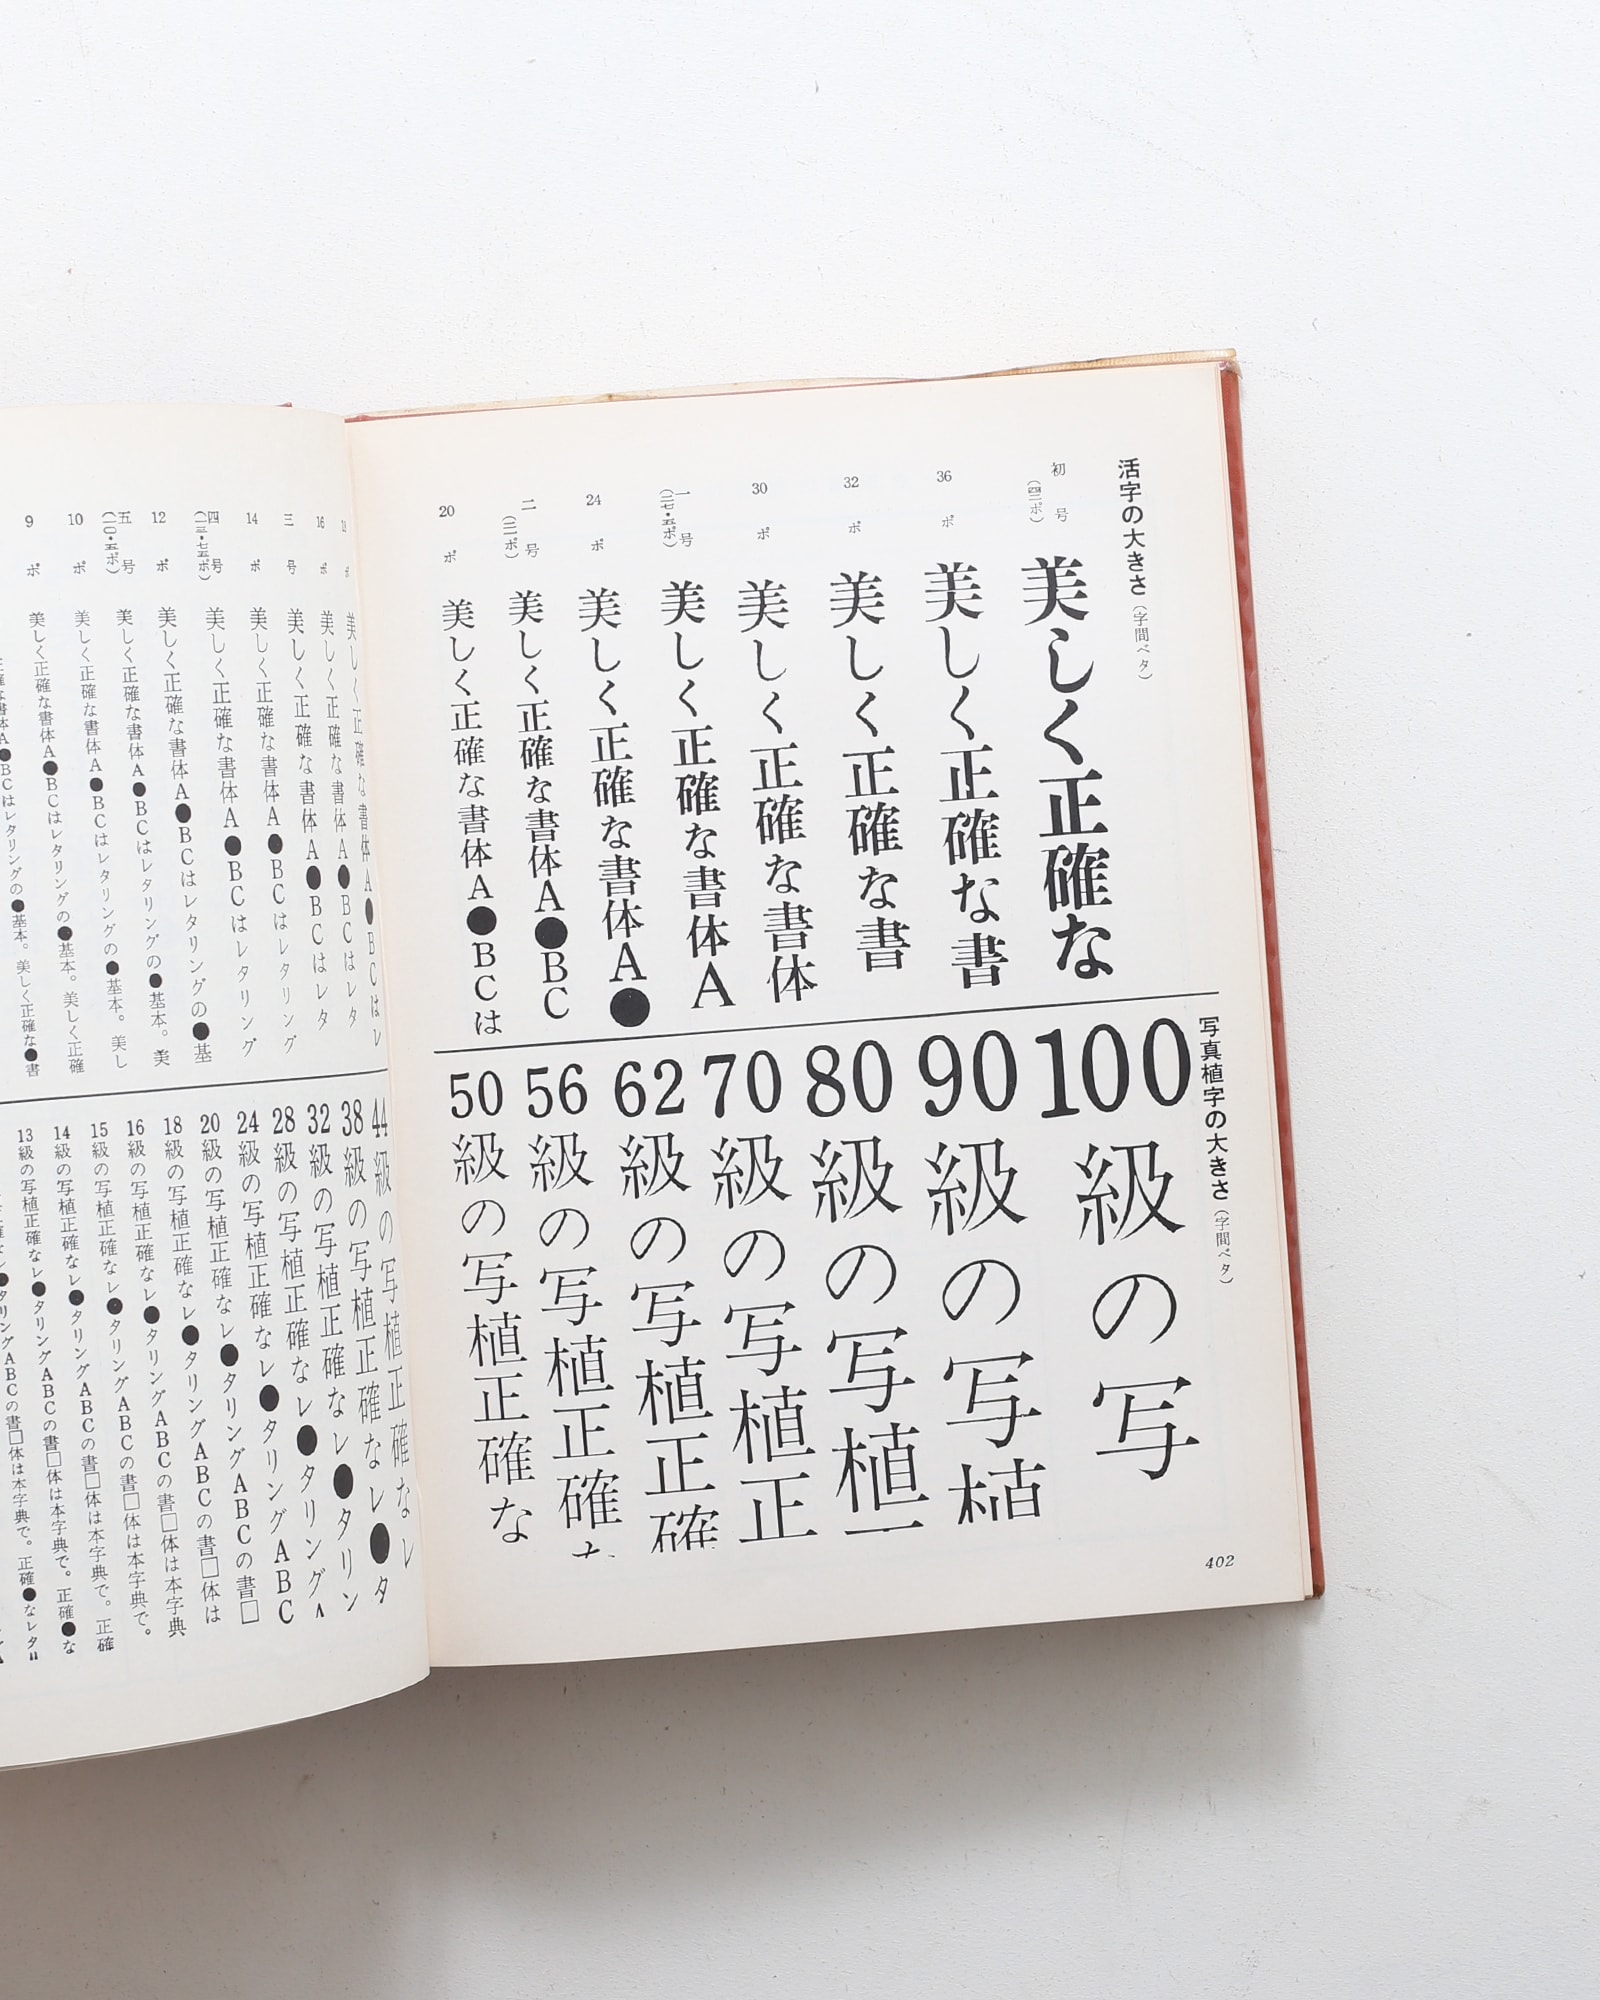 活字の大きさ(字間ベタ)
初号(四二ポ) 美しく正確な
36ポ 美しく正確な書
32ポ 美しく正確な書
30ポ 美しく正確な書体
一号(二七・五ポ) 美しく正確な書体A
24ポ 美しく正確な書体A●
二号(二一ポ) 美しく正確な書体A●BC
20ポ 美しく正確な書体A●BCは
写真植字の大きさ(字間ベタ)
100級の写
90級の写植
80級の写植
70級の写植正
62級の写植正確
56級の写植正確
50級の写植正確な
402
美しく正確な書体A●BCはレ
16ポ 美しく正確な書体A●BCはレタ
三号 美しく正確な書体A●BCはレタ
14ポ 美しく正確な書体A●BCはレタリング
四号(一三・七五ポ) 美しく正確な書体A●BCはレタリング
12ポ 美しく正確な書体A●BCはレタリングの●基
五号(一〇・五ポ) 美しく正確な書体A●BCはレタリングの●基本。美
10ポ 美しく正確な書体A●BCはレタリングの●基本。美し
9ポ 美しく正確な書体A●BCはレタリングの●基本。美しく正確
正確な書体A●BCはレタリングの●基本。美しく正確な●書
44級の写植正確なレ
38級の写植正確なレ●タ
32級の写植正確なレ●タリン
28級の写植正確なレ●タリングA
24級の写植正確なレ●タリングABC
20級の写植正確なレ●タリングABCの書□
18級の写植正確なレ●タリングABCの書□体は
16級の写植正確なレ●タリングABCの書□体は本字典
15級の写植正確なレ●タリングABCの書□体は本字典で。
14級の写植正確なレ●タリングABCの書□体は本字典で。正確
13級の写植正確なレ●タリングABCの書□体は本字典で。正確●な
●タリングABCの書□体は本字典で。正確●なレタ